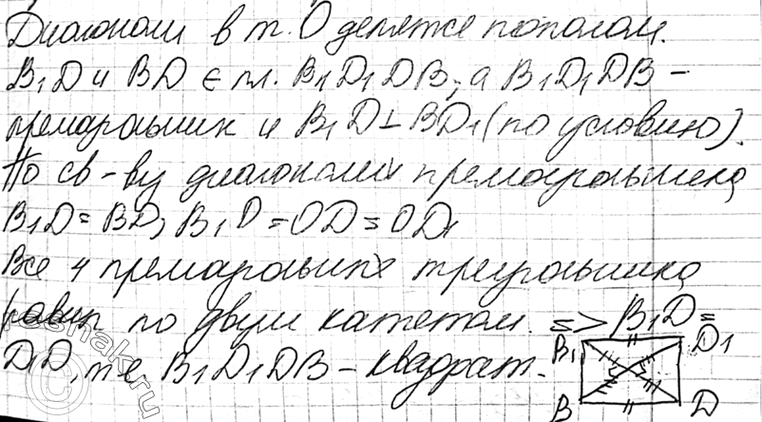 Диагонали в т. O делятся пополам.
B₁D и BD ∈ пл. B₁D₁DB, а B₁D₁DB –
прямоугольник и B₁D ⊥ BD₁ (по условию).
По св-ву диагоналей прямоугольника
B₁D = BD, B₁O = OD = OD₁
Все 4 прямоугольные треугольника
равны по двум катетам. => B₁D =
D₁D, т.е. B₁D₁DB – квадрат.
B₁ D₁
B D